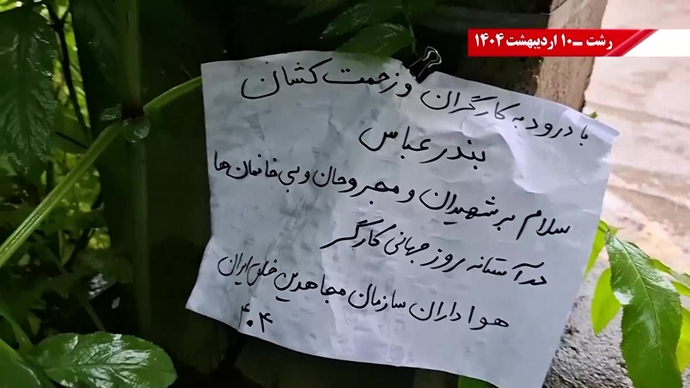 رشت ــ ۱۰ اردیبهشت ۱۴۰۴
با درود به کارگران و زحمت کشان
بندرعباس
سلام بر شهیدان و مجروحان و بی خانمان ها
در آستانه روز جهانی کارگر
هواداران سازمان مجاهدین خلق ایران
۴۰۴